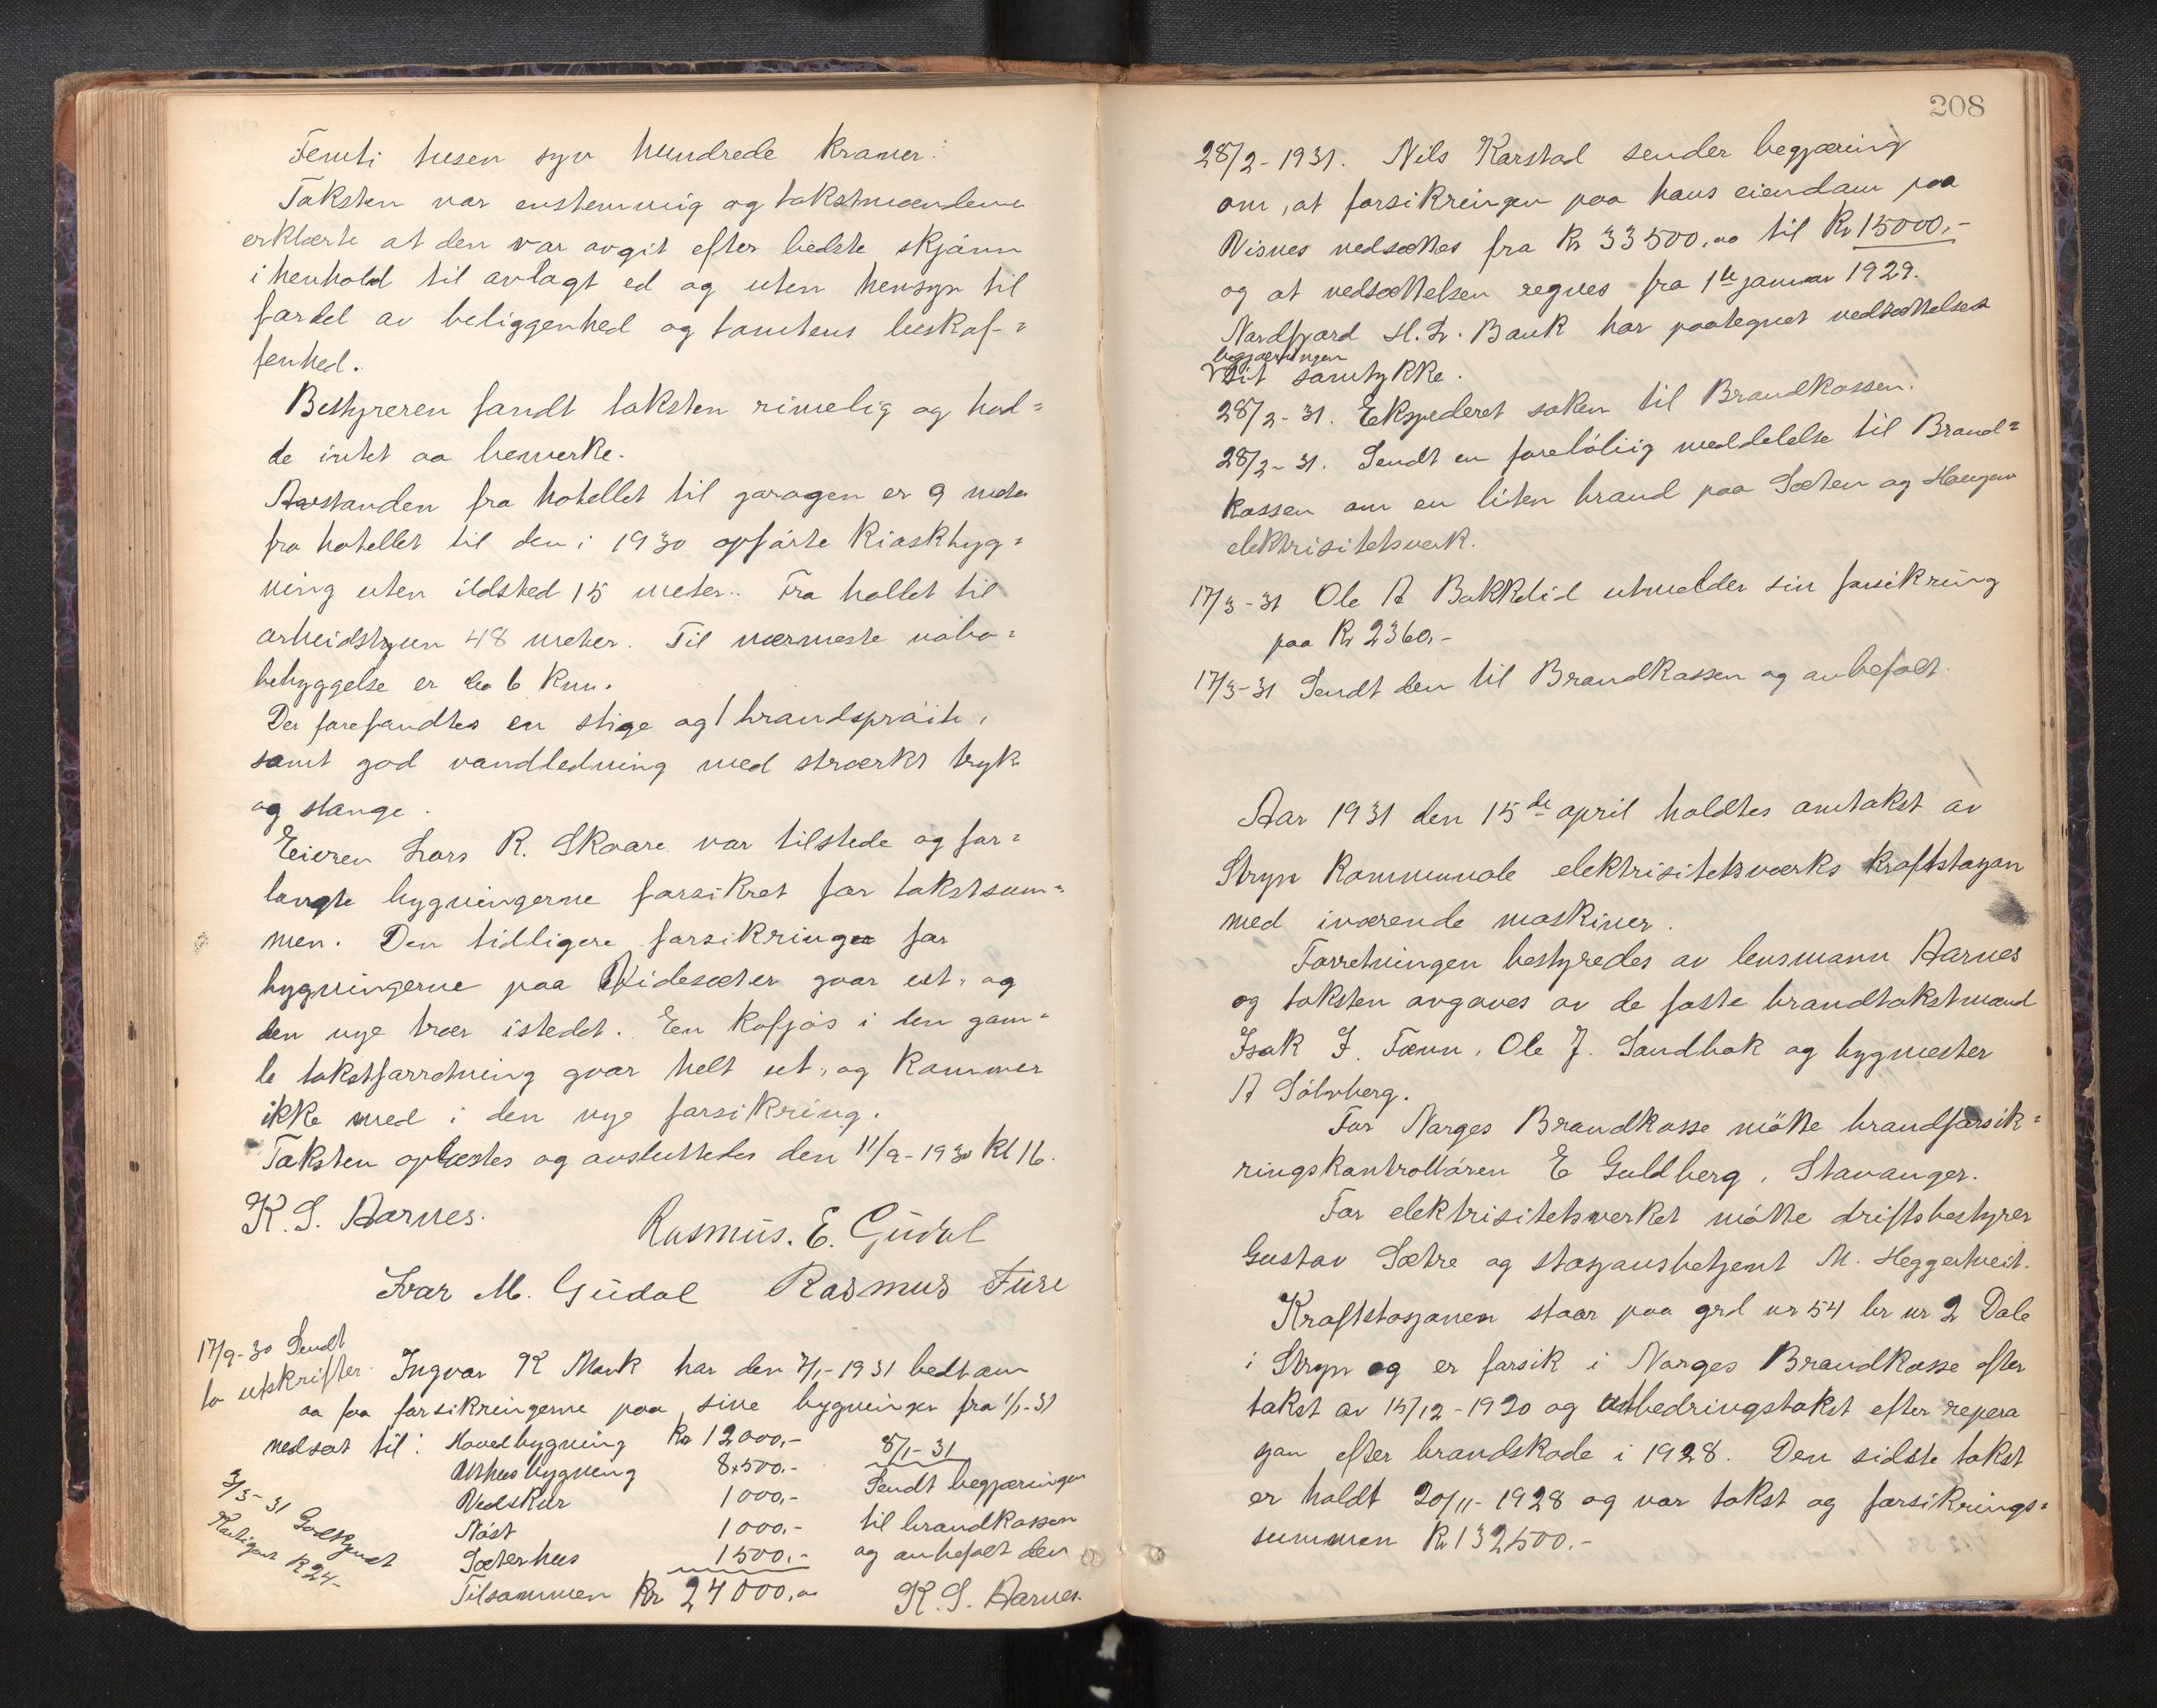 Femti tusen syv hundrede kroner.
Taksten var enstemmig og takstmændene
erklærte at den var avgit efter bedste skjønn
i henhold til avlagt ed og uten hensyn til
fordel av beliggenhed og tomtens beskaf-
fenhed.
Bestyreren fandt taksten rimelig og had-
de intet aa bemerke.
Avstanden fra hotellet til garagen er 9 meter
fra hotellet til den i 1930 opførte kioskbyg-
ning uten ildsted 15 meter. Fra hollet til
arbeidstyun 48 meter. Til nærmeste nabo-
bebyggelse er ca 6 km.
Der forefandtes en stige og 1 brandsprøite,
samt god vandledning med strærkt tryk
og slange.
Eieren Lars R. Skaare var tilstede og for-
langte bygningerne forsikret for takstsum-
men. Den tidligere forsikring for
bygningerne paa Videsæter gaar ut, og
den nye trær istedet. En kafjøs i den gam-
le takstforretning gaar helt ut, og kommer
ikke med i den nye forsikring.
Taksten oplæstes og avsluttedes den 11/9-1930 kl 16.
K. S. Aarnes.
Rasmus. E. Gudal
Ivar M. Gudal Rasmus Fure
17/9-30 Sendt
to utskrifter.
Ingvar K Mork har den 7/1-1931 bedt om
aa faa forsikringerne paa sine bygninger fra 1/1-31
nedsat til: Hovedbygning Kr 12000,-
Uthusbygning 8500,-
Vedskur 1000,-
Nøst 1000,-
Sæterhus 1500,-
Tilsammen Kr 24000,00
8/1-31
Sendt begjæringen
til brandkassen
og anbefalt den
K. S. Aarnes.
3/3-31 Godkjendt
Kontigent K 24-
208
28/2-1931. Nils Karstad sender begjæring
om, at forsikringen paa hans eiendom paa
Visnes nedsættes fra Kr 33500,00 til Kr 15000,-
og at nedsættelsen regnes fra 1ste januar 1929.
Nordfjord H. L. Bank har paategnet nedsættelses
begjæringen
sit samtykke.
28/2-31. Ekspederet saken til Brandkassen.
28/2-31. Sendt en foreløbig meddelelse til Brand-
kassen om en liten brand paa Sæten og Haugen
elektrisitetsverk.
17/3-31 Ole A Bakkelid utmelder sin forsikring
paa Kr 2360,-
17/3-31 Sendt den til Brandkassen og anbefalt.
Aar 1931 den 15de april holdtes omtakst av
Stryn kommunale elektrisitetsværks kraftstasjon
med iværende maskiner.
Forretningen bestyredes av lensmann Aarnes
og taksten avgaves av de faste brandtakstmænd
Isak I. Tonn, Ole J. Sandbak og bygmester
A Sølvberg.
For Norges Brandkasse møtte brandforsik-
ringskontrolløren E Guldberg, Stavanger.
For elektrisitetsverket møtte driftsbestyrer
Gustav Sætre og stasjonsbetjent M. Heggertveit.
Kraftstasjonen staar paa grd nr 54 br nr 2 Dale
i Stryn og er forsik i Norges Brandkasse efter
takst av 15/12-1920 og utbedringstakst efter repera
sjon efter brandskade i 1928. Den sidste takst
er holdt 20/11-1928 og var takst og forsikrings-
summen Kr 132500,-